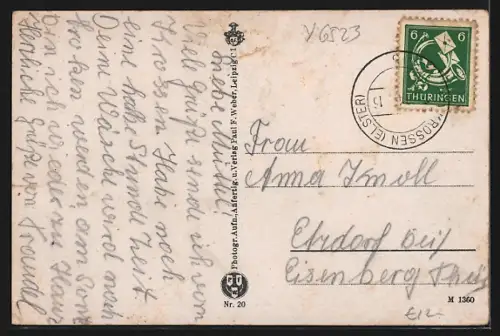 Liebe Mutti!
Viel Grüße sende ich vom
Krossen. Habe noch
eine halbe Stunde Zeit.
Deine Wäsche wird noch
trocken werden am Sonn
bin ich wieder zu Haus
Herzliche Grüße von Traudel
Photogr. Aufn., Anfertig. u. Verlag Paul F. Weber, Leipzig C 1
Nr. 20
V6523
6 6
THÜRINGEN
KROSSEN (ELSTER)
Frau
Anna Knoll
Etzdorf bei
Eisenberg Thür
M 1360
£12.-